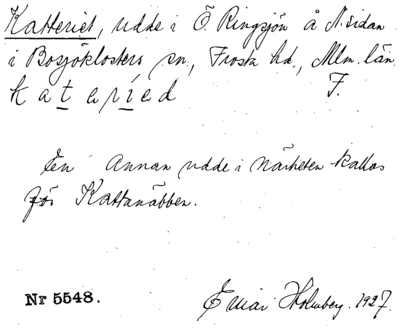 Katteriet, udde i Ö. Ringsjön å N. sidan
i Bosjöklosters sn, Frosta hd., Mlm. län.
F.
En annan udde i närheten kallas
för Kattanäbben.
Nr 5548.
Einar Holmberg. 1927.